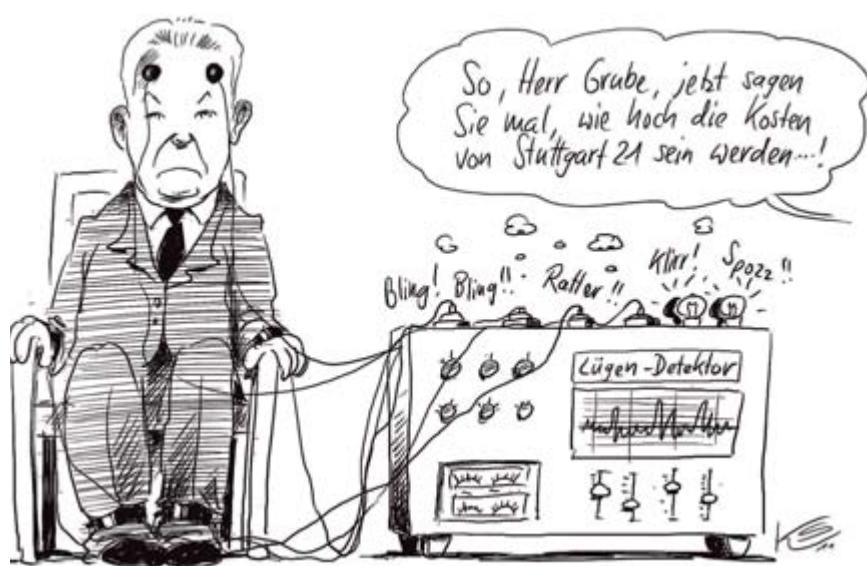 So, Herr Grube, jetzt sagen
Sie mal, wie hoch die Kosten
von Stuttgart 21 sein werden...!
Bling! Bling!! Ratter!! Klirr! Spozz!!
Lügen-Detektor